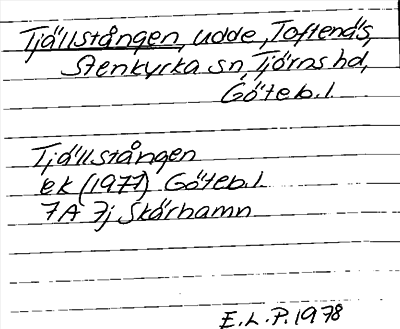 Tjällstången, udde, Toftenäs,
Stenkyrka sn, Tjörns hd,
Göteb.l.
Tjällstången
ek (1977) Göteb.l.
7A 7j Skärhamn
E.L.P. 1978